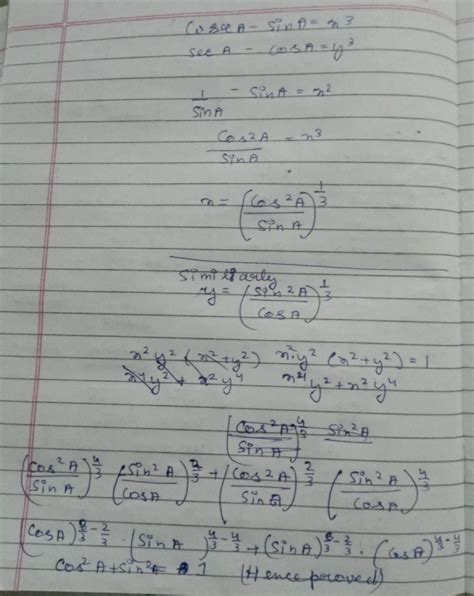 Cosec A - Sin A = x³
sec A - Cos A = y³
1/Sin A - Sin A = x²
Cos²A/Sin A = x³
x = (Cos²A/Sin A)^1/3
Similarly
y = (Sin²A/Cos A)^1/3
x²y² (x²+y²) x²·y² (x²+y²) = 1
x⁴y² + x²y⁴ x⁴y² + x²y⁴
(Cos²A/Sin A)^4/3 Sin²A
(Cos²A/Sin A)^4/3 (Sin²A/Cos A)^2/3 + (Cos²A/Sin A)^2/3 (Sin²A/Cos A)^4/3
(Cos A)^8/3-2/3 · (Sin A)^4/3-4/3 + (Sin A)^8/3-2/3 · (Cos A)^4/3-4/3
Cos²A + Sin²A = 1 (Hence proved)